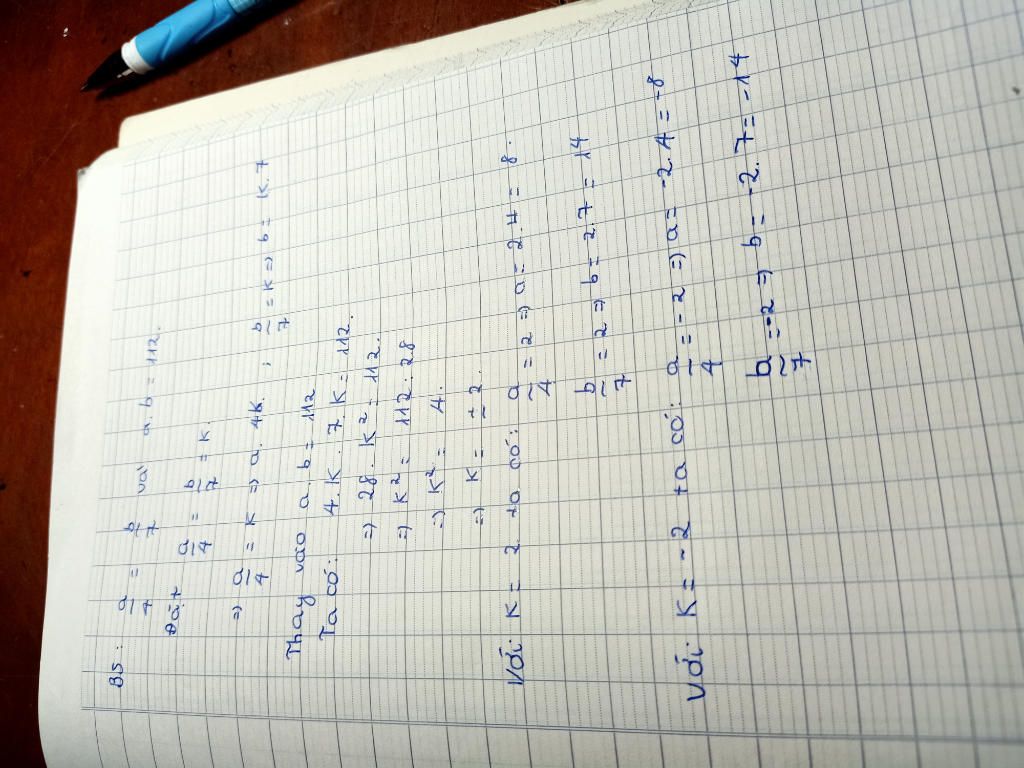 B5:
a/4 = b/7 và a.b = 112.
Đặt a/4 = b/7 = k.
=) a/4 = k =) a. 4k. ; b/7 = k =) b = k.7
Thay vào a.b = 112
Ta có: 4.k.7.k = 112.
=) 28.k² = 112.
=) k² = 112:28
=) k² = 4.
=) k = ± 2.
Với k = 2 ta có: a/4 = 2 =) a = 2.4 = 8.
b/7 = 2 =) b = 2.7 = 14
Với k = -2 ta có: a/4 = -2 =) a = -2.4 = -8
b/7 = -2 =) b = -2.7 = -14